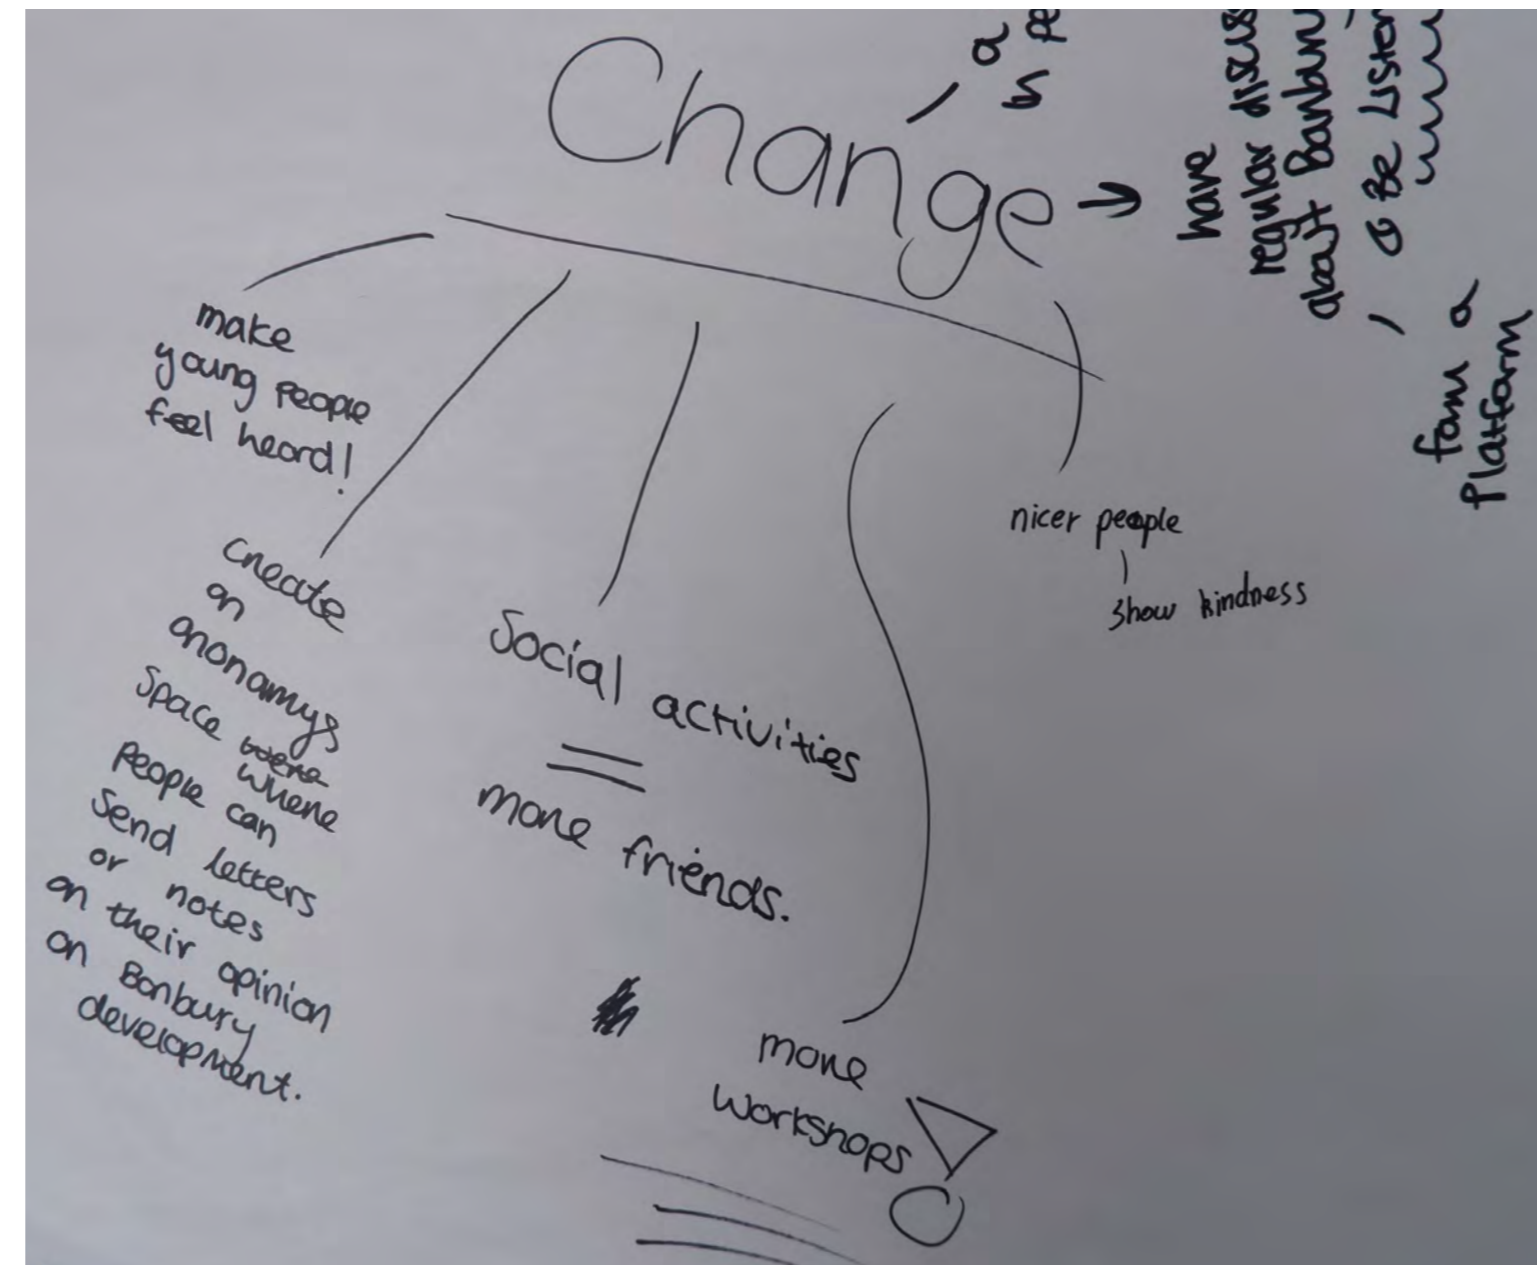 Change
make
young people
feel heard!
create
an
anonamys
space were
where
people can
send letters
or notes
on their opinion
on Banbury
development.
Social activities
=
more friends.
more
workshops!
nicer people
show kindness
a
in pe
have
regular discus
about Banbury
Be Listen
form a
Platform